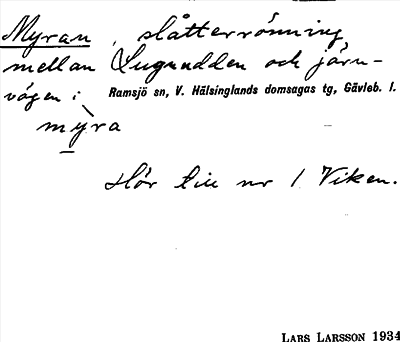 Myran, slåtterrönning
mellan Lugnudden och järn-
vägen i Ramsjö sn, V. Hälsinglands domsagas tg, Gävleb. l.
mỳra
Hör till nr 1 Viken.
LARS LARSSON 1934